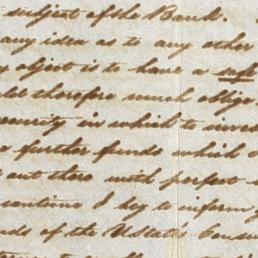 subject of the Bank.
any idea as to any other
object is to have a safe
therefore much oblige
security in which to invest
further funds which
out there with perfect
continue I beg to inform
of the U States